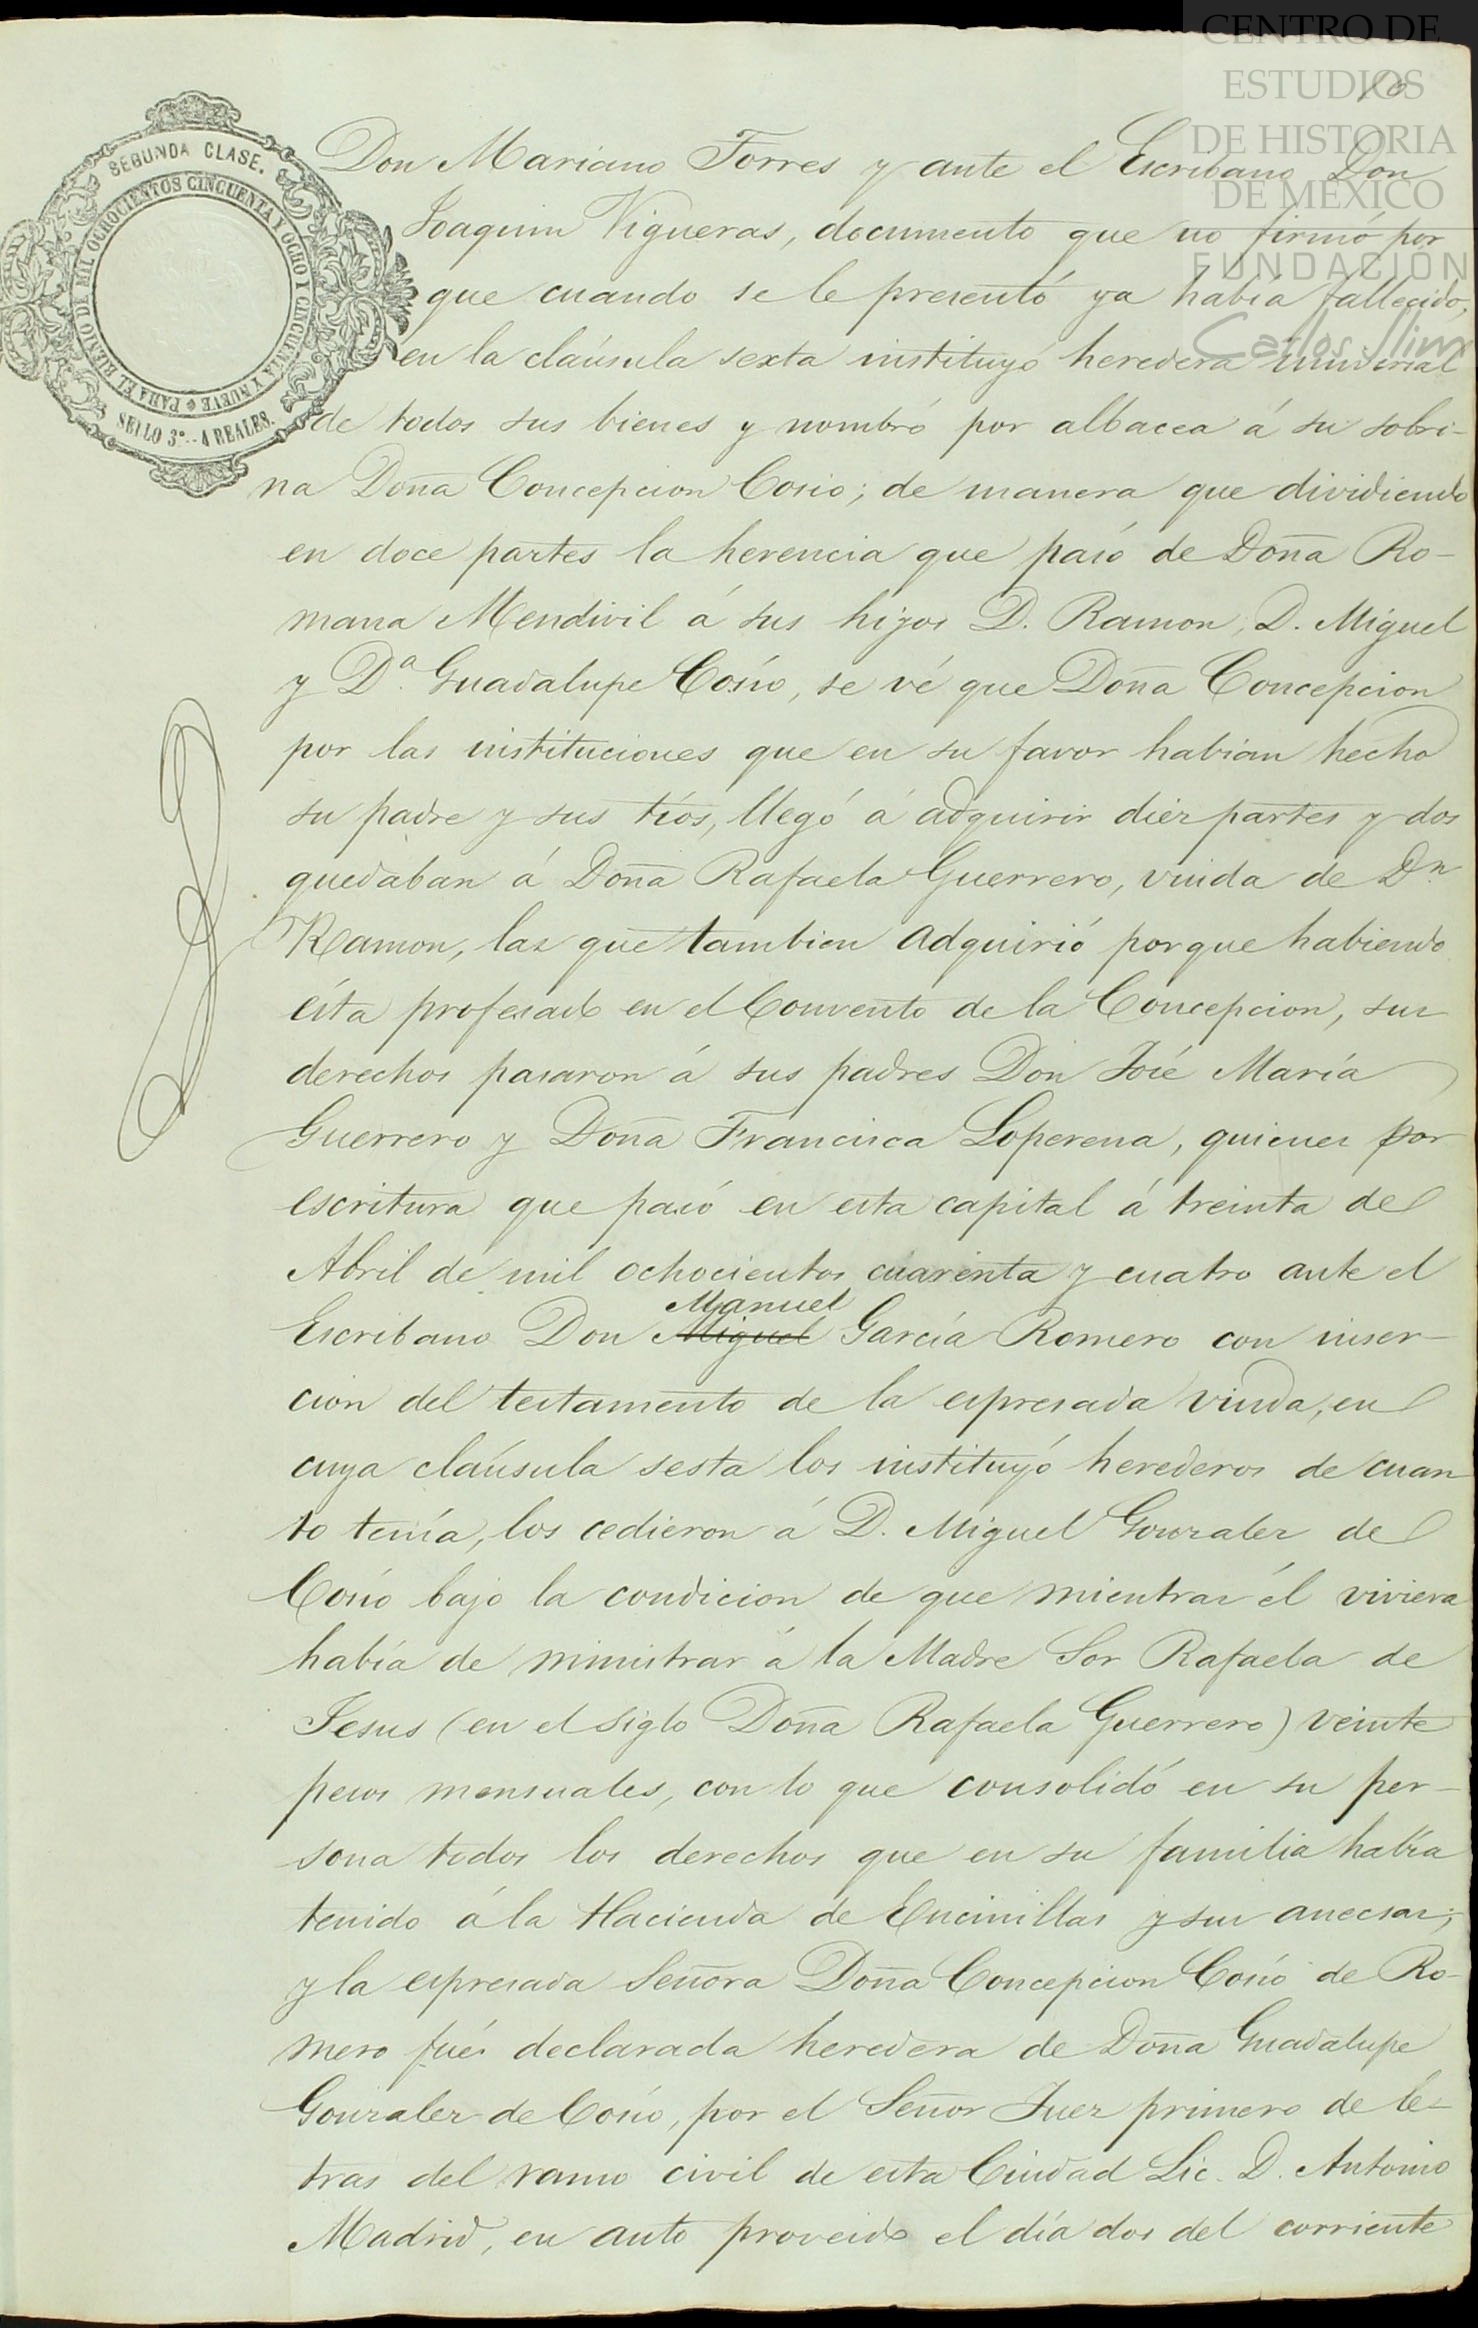 CENTRO DE
ESTUDIOS
DE HISTORIA
DE MÉXICO
FUNDACIÓN
Carlos Slim
10
SEGUNDA CLASE.
PARA EL BIENIO DE MIL OCHOCIENTOS CINCUENTA Y OCHO Y CINCUENTA Y NUEVE
SELLO 3º.. 4 REALES.
Don Mariano Torres y ante el Escribano Don
Joaquin Vigueras, documento que no firmó por
que cuando se le presentó ya habia fallecido,
en la claúsula sexta instituyo heredera universal
de todos sus bienes y nombró por albacea á su sobri-
na Doña Concepcion Cosio; de manera que dividiendo
en doce partes la herencia que pasó de Doña Ro-
mana Mendivil á sus hijos D. Ramon, D. Miguel
y D.ª Guadalupe Cosío, se vé que Doña Concepcion
por las instituciones que en su favor habian hecho
su padre y sus tíos, llegó á adquirir diez partes y dos
quedaban á Doña Rafaela Guerrero, viuda de Dn
Ramon, las que tambien adquirió porque habiendo
ésta profesado en el Convento de la Concepcion, sus
derechos pasaron á sus padres Don José María
Guerrero y Doña Francisca Loperena, quienes por
escritura que pasó en esta capital á treinta de
Abril de mil ochocientos cuarenta y cuatro ante el
Manuel
Escribano Don Miguel García Romero con inser-
cion del testamento de la espresada viuda, en
cuya claúsula sesta los instituyó herederos de cuan
to tenía, los cedieron á D. Miguel Gonzalez de
Cosío bajo la condicion de que mientras él viviera
había de ministrar á la Madre Sor Rafaela de
Jesus (en el siglo Doña Rafaela Guerrero) veinte
pesos mensuales, con lo que consolidó en su per-
sona todos los derechos que en su familia había
tenido á la Hacienda de Encinillas y sus anecsas;
y la espresada Señora Doña Concepcion Cosío de Ro-
mero fué declarada heredera de Doña Guadalupe
Gonzalez de Cosío, por el Señor Juez primero de le-
tras del ramo civil de esta Ciudad Lic. D. Antonio
Madrid, en auto proveido el día dos del corriente